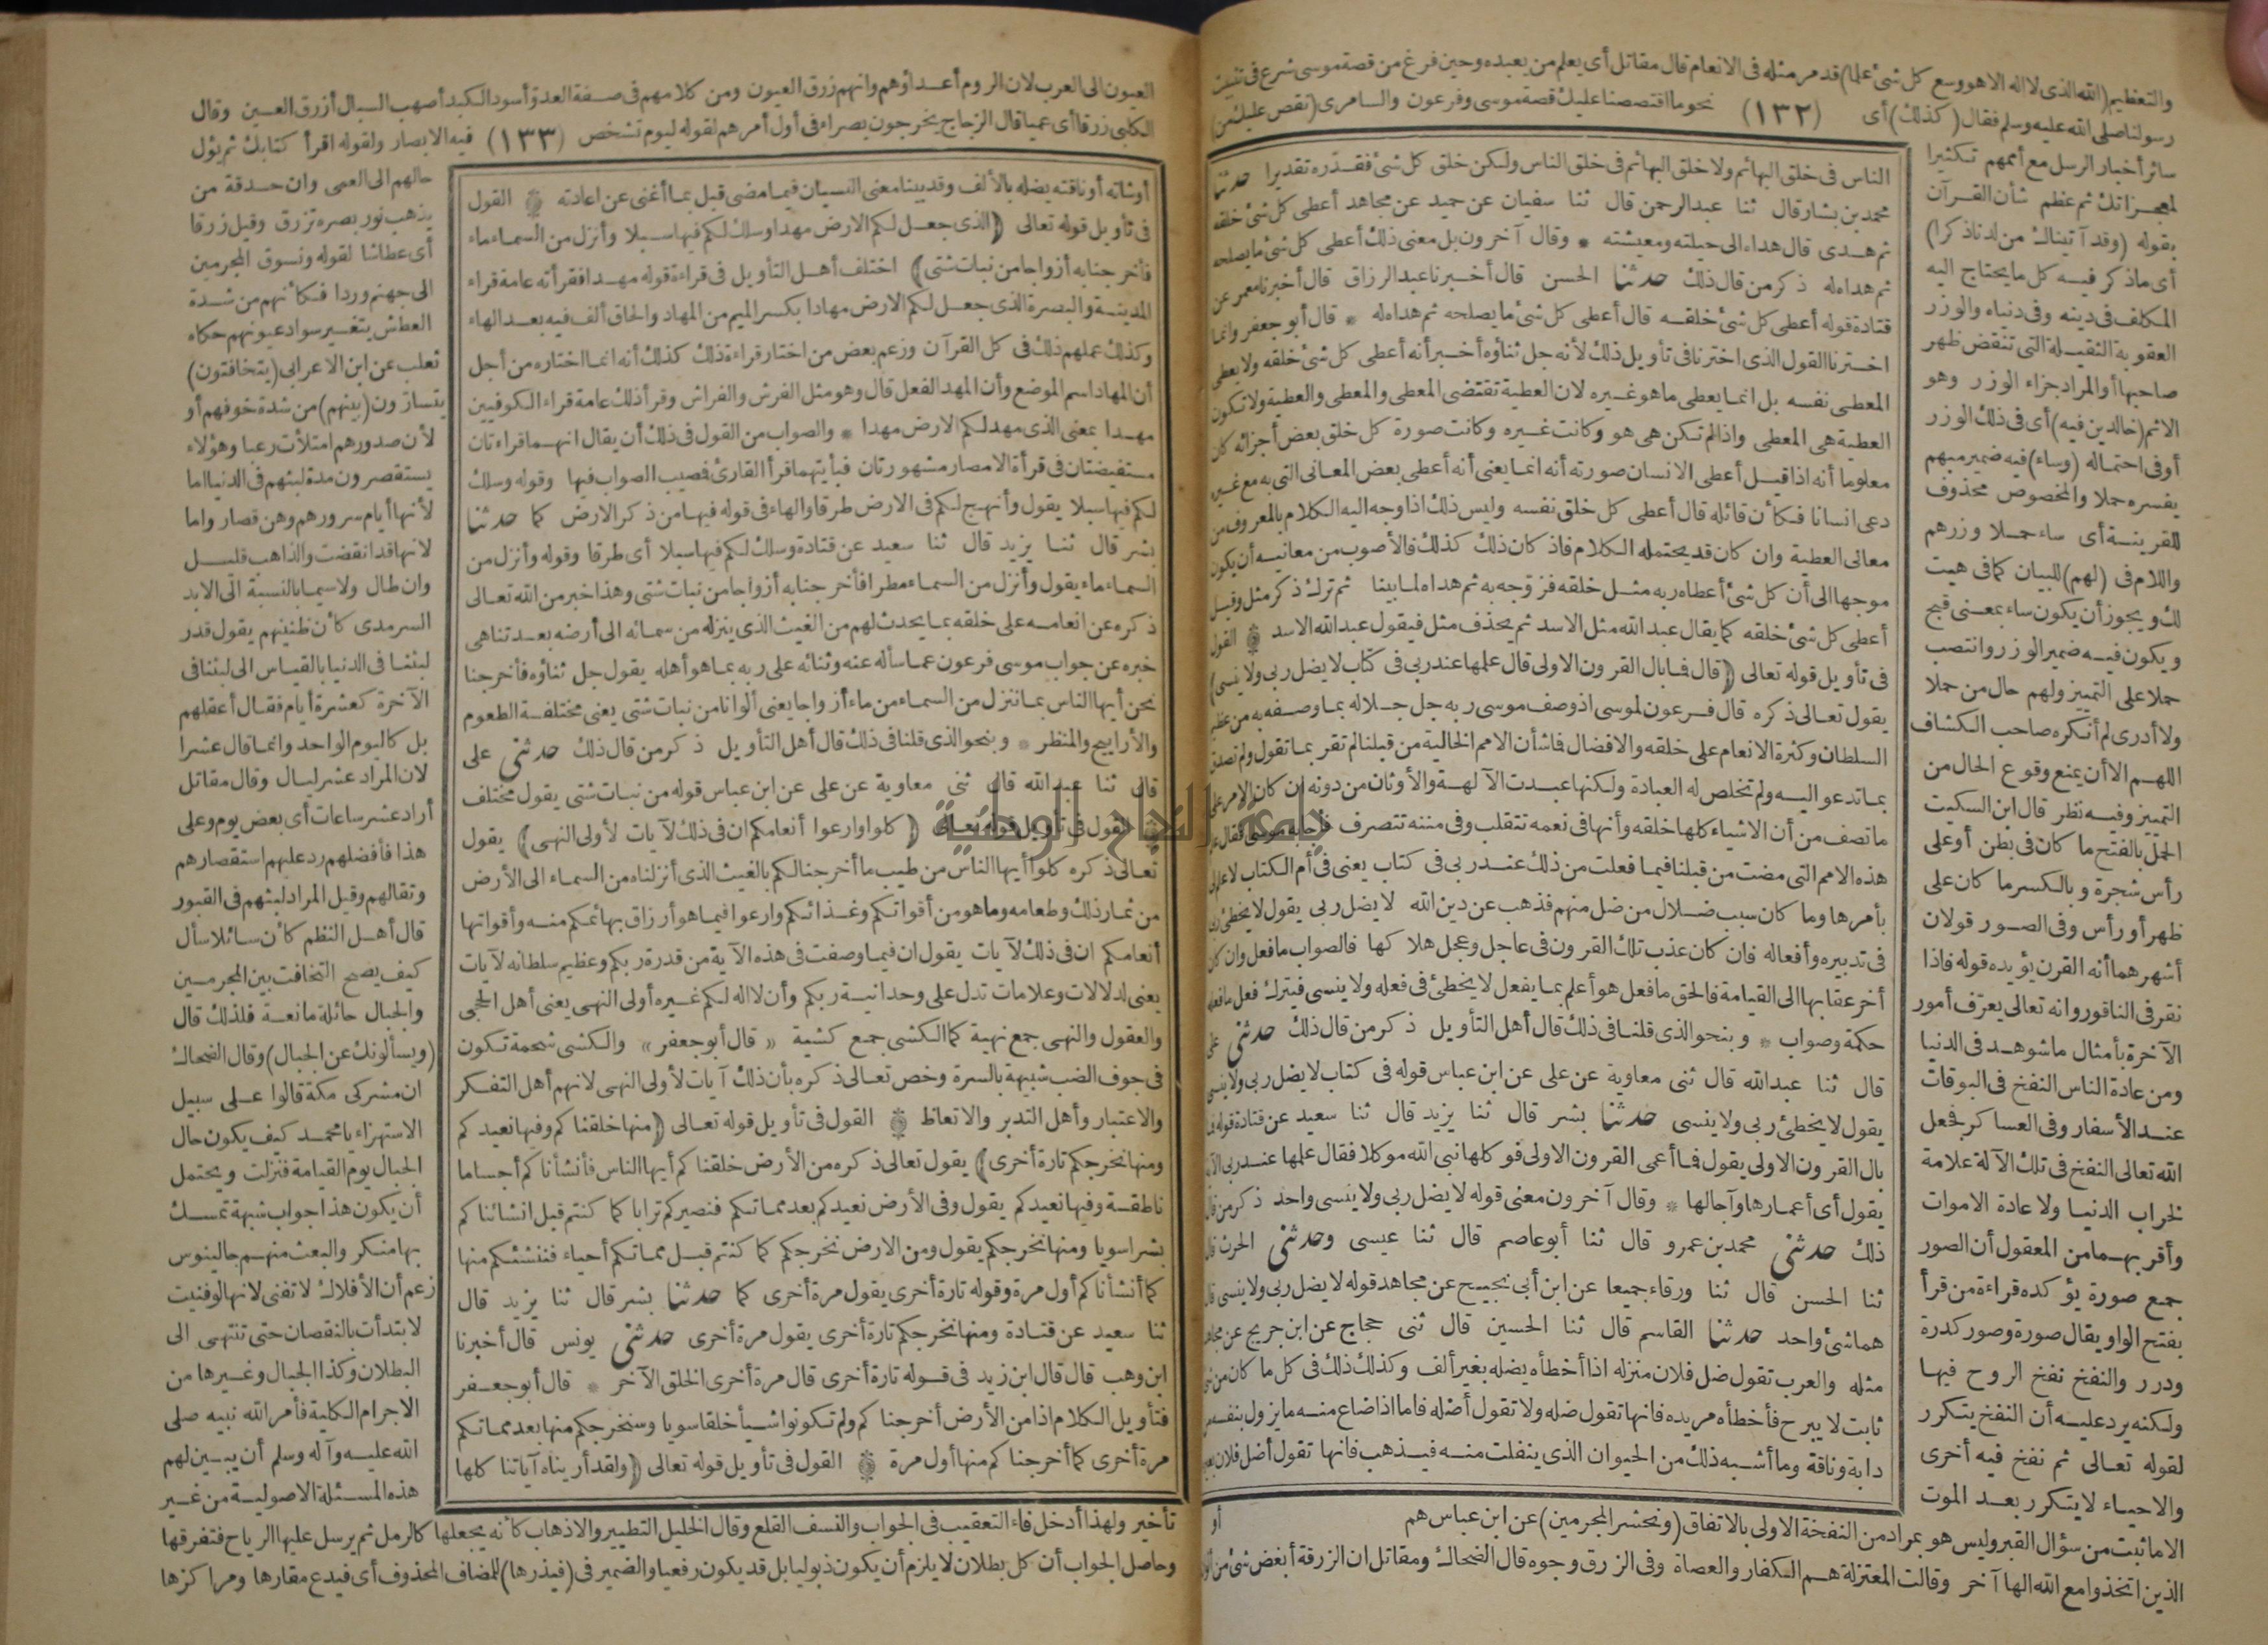 والتعظيم (الله الذى لا اله الا هو وسع كل شئ علما) قد مر مثله فى الانعام قال مقاتل أى يعلم من يعبده وحين فرغ من قصة موسى شرع فى
رسولنا صلى الله عليه وسلم فقال (كذلك) أى (١٣٢) نحو ما اقتصصنا عليك قصة موسى وفرعون والسامرى (نقص عليك من)
سائر أخبار الرسل مع أممهم تكثيرا
لمعجزاتك ثم عظم شأن القرآن
بقوله (وقد آتيناك من لدنا ذكرا)
أى ما ذكر فيه كل ما يحتاج اليه
المكلف فى دينه وفى دنياه والوزر
العقوبة الثقيلة التى تنقض ظهر
صاحبها أو المراد جزاء الوزر وهو
الاثم (خالدين فيه) أى فى ذلك الوزر
أو فى احتماله (وساء) فيه ضمير مبهم
يفسره حملا والمخصوص محذوف
للقرينة أى ساء حملا وزرهم
واللام فى (لهم) للبيان كما فى هيت
لك ويجوز أن يكون ساء بمعنى قبح
ويكون فيه ضمير الوزر وانتصب
حملا على التمييز ولهم حال من حملا
ولا أدرى لم أنكره صاحب الكشاف
اللهم الا أن يمنع وقوع الحال من
التمييز وفيه نظر قال ابن السكيت
الحمل بالفتح ما كان فى بطن أو على
رأس شجرة وبالكسر ما كان على
ظهر أو رأس وفى الصور قولان
أشهرهما أنه القرن يؤيده قوله فاذا
نقر فى الناقور وانه تعالى يعرف أمور
الآخرة بأمثال ما شوهد فى الدنيا
ومن عادة الناس النفخ فى البوقات
عند الأسفار وفى العساكر فجعل
الله تعالى النفخ فى تلك الآلة علامة
لخراب الدنيا ولاعادة الاموات
وأقربهما من المعقول أن الصور
جمع صورة يؤكده قراءة من قرأ
بفتح الواو يقال صورة وصور كدرة
ودرر والنفخ نفخ الروح فيها
ولكنه يرد عليه أن النفخ يتكرر
لقوله تعالى ثم نفخ فيه أخرى
والاحياء لا يتكرر بعد الموت
الناس فى خلق البهائم ولا خلق البهائم فى خلق الناس ولكن خلق كل شئ فقدره تقديرا حدثنا
محمد بن بشار قال ثنا عبد الرحمن قال ثنا سفيان عن حميد عن مجاهد أعطى كل شئ خلقه
ثم هدى قال هداه الى حيلته ومعيشته * وقال آخرون بل معنى ذلك أعطى كل شئ ما يصلحه
ثم هداه له ذكر من قال ذلك حدثنا الحسن قال أخبرنا عبد الرزاق قال أخبرنا معمر عن
قتادة قوله أعطى كل شئ خلقه قال أعطى كل شئ ما يصلحه ثم هداه له * قال أبو جعفر وانما
اخترنا القول الذى اخترنا فى تأويل ذلك لأنه جل ثناؤه أخبر أنه أعطى كل شئ خلقه ولا يعطى
المعطى نفسه بل انما يعطى ما هو غيره لان العطية تقتضى المعطى والمعطى والعطية ولا تكون
العطية هى المعطى واذا لم تكن هى هو وكانت غيره وكانت صورة كل خلق بعض أجزائه كان
معلوما أنه اذا قيل أعطى الانسان صورته أنه انما يعنى أنه أعطى بعض المعانى التى به مع غيره
دعى انسانا فكأن قائله قال أعطى كل خلق نفسه وليس ذلك اذا وجه اليه الكلام بالمعروف من
معانى العطية وان كان قد يحتمله الكلام فاذ كان ذلك كذلك فالأصوب من معانيه أن يكون
موجها الى أن كل شئ أعطاه ربه مثل خلقه فزوجه به ثم هداه لما بينا ثم ترك ذكر مثل وقيل
أعطى كل شئ خلقه كما يقال عبد الله مثل الاسد ثم يحذف مثل فيقول عبد الله الاسد القول
فى تأويل قوله تعالى (قال فما بال القرون الاولى قال علمها عند ربى فى كتاب لا يضل ربى ولا ينسى)
يقول تعالى ذكره قال فرعون لموسى اذ وصف موسى ربه جل جلاله بما وصفه به من عظيم
السلطان وكثرة الانعام على خلقه والافضال فما شأن الامم الخالية من قبلنا لم تقر بما تقول ولم تصدق
بما تدعو اليه ولم تخلص له العبادة ولكنها عبدت الآلهة والأوثان من دونه ان كان الامر على
ما تصف من أن الاشياء كلها خلقه وأنها فى نعمه تتقلب وفى مننه تتصرف فأجابه موسى فقال علم
هذه الامم التى مضت من قبلنا فيما فعلت من ذلك عند ربى فى كتاب يعنى فى أم الكتاب لا علم لى
بأمرها وما كان سبب ضلال من ضل منهم فذهب عن دين الله لا يضل ربى يقول لا يخطئ ربى
فى تدبيره وأفعاله فان كان عذب تلك القرون فى عاجل وعجل هلاكها فالصواب ما فعل وان كان
أخر عقابها الى القيامة فالحق ما فعل هو أعلم بما يفعل لا يخطئ فى فعله ولا ينسى فيترك فعل ما فعله
حكمة وصواب * وبنحو الذى قلنا فى ذلك قال أهل التأويل ذكر من قال ذلك حدثنى على
قال ثنا عبد الله قال ثنى معاوية عن على عن ابن عباس قوله فى كتاب لا يضل ربى ولا ينسى
يقول لا يخطئ ربى ولا ينسى حدثنا بشر قال ثنا يزيد قال ثنا سعيد عن قتادة قوله فما
بال القرون الاولى يقول فما أعمى القرون الاولى فوكلها نبى الله موكلا فقال علمها عند ربى الآية
يقول أى أعمارها وآجالها * وقال آخرون معنى قوله لا يضل ربى ولا ينسى واحد ذكر من قال
ذلك حدثنى محمد بن عمرو قال ثنا أبو عاصم قال ثنا عيسى وحدثنى الحرث قال
ثنا الحسن قال ثنا ورقاء جميعا عن ابن أبى نجيح عن مجاهد قوله لا يضل ربى ولا ينسى قال
هما شئ واحد حدثنا القاسم قال ثنا الحسين قال ثنى حجاج عن ابن جريج عن مجاهد
مثله والعرب تقول ضل فلان منزله اذا أخطأه يضله بغير ألف وكذلك ذلك فى كل ما كان من شئ
ثابت لا يبرح فأخطأه مريده فانها تقول ضله ولا تقول أضله فاما اذا ضاع منه ما يزول بنفسه من
دابة وناقة وما أشبه ذلك من الحيوان الذى ينفلت منه فيذهب فانها تقول أضل فلان بعيره
أو
الا ما ثبت من سؤال القبر وليس هو بمراد من النفخة الاولى بالاتفاق (ونحشر المجرمين) عن ابن عباس هم
الذين اتخذوا مع الله الها آخر وقالت المعتزلة هم الكفار والعصاة وفى الزرق وجوه قال الضحاك ومقاتل ان الزرقة أبغض شئ من
العيون الى العرب لان الروم أعداؤهم وانهم زرق العيون ومن كلامهم فى صفة العدو أسود الكبد أصهب السبال أزرق العين وقال
الكلبى زرقا أى عميا قال الزجاج يخرجون بصراء فى أول أمرهم لقوله ليوم تشخص (١٣٣) فيه الابصار ولقوله اقرأ كتابك ثم يؤل
أو شاته أو ناقته يضله بالألف وقد بينا معنى النسيان فيما مضى قبل بما أغنى عن اعادته القول
فى تأويل قوله تعالى (الذى جعل لكم الارض مهدا وسلك لكم فيها سبلا وأنزل من السماء ماء
فأخرجنا به أزواجا من نبات شتى) اختلف أهل التأويل فى قراءة قوله مهدا فقرأته عامة قراء
المدينة والبصرة الذى جعل لكم الارض مهادا بكسر الميم من المهاد والحاق ألف فيه بعد الهاء
وكذلك عملهم ذلك فى كل القرآن وزعم بعض من اختار قراءة ذلك كذلك أنه انما اختاره من أجل
أن المهاد اسم الموضع وأن المهد الفعل قال وهو مثل الفرش والفراش وقرأ ذلك عامة قراء الكوفيين
مهدا بمعنى الذى مهد لكم الارض مهدا * والصواب من القول فى ذلك أن يقال انهما قراءتان
مستفيضتان فى قرأة الامصار مشهورتان فبأيتهما قرأ القارئ فمصيب الصواب فيها وقوله وسلك
لكم فيها سبلا يقول وأنهج لكم فى الارض طرقا والهاء فى قوله فيها من ذكر الارض كما حدثنا
بشر قال ثنا يزيد قال ثنا سعيد عن قتادة وسلك لكم فيها سبلا أى طرقا وقوله وأنزل من
السماء ماء يقول وأنزل من السماء مطرا فأخرجنا به أزواجا من نبات شتى وهذا خبر من الله تعالى
ذكره عن انعامه على خلقه بما يحدث لهم من الغيث الذى ينزله من سمائه الى أرضه بعد تناهى
خبره عن جواب موسى فرعون عما سأله عنه وثنائه على ربه بما هو أهله يقول جل ثناؤه فأخرجنا
نحن أيها الناس بما ننزل من السماء من ماء أزواجا يعنى ألوانا من نبات شتى يعنى مختلفة الطعوم
والأراييح والمنظر * وبنحو الذى قلنا فى ذلك قال أهل التأويل ذكر من قال ذلك حدثنى على
قال ثنا عبد الله قال ثنى معاوية عن على عن ابن عباس قوله من نبات شتى يقول مختلف
القول فى تأويل قوله تعالى (كلوا وارعوا أنعامكم ان فى ذلك لآيات لأولى النهى) يقول
تعالى ذكره كلوا أيها الناس من طيب ما أخرجنا لكم بالغيث الذى أنزلناه من السماء الى الأرض
من ثمار ذلك وطعامه وما هو من أقواتكم وغذائكم وارعوا فيما هو أرزاق بهائمكم منه وأقواتها
أنعامكم ان فى ذلك لآيات يقول ان فيما وصفت فى هذه الآية من قدرة ربكم وعظيم سلطانه لآيات
يعنى لدلالات وعلامات تدل على وحدانية ربكم وأن لا اله لكم غيره أولى النهى يعنى أهل الحجى
والعقول والنهى جمع نهية كما الكشى جمع كشية «قال أبو جعفر» والكشى شحمة تكون
فى جوف الضب شبيهة بالسرة وخص تعالى ذكره بأن ذلك آيات لأولى النهى لانهم أهل التفكر
والاعتبار وأهل التدبر والاتعاظ القول فى تأويل قوله تعالى (منها خلقناكم وفيها نعيدكم
ومنها نخرجكم تارة أخرى) يقول تعالى ذكره من الأرض خلقناكم أيها الناس فأنشأناكم أجساما
ناطقة وفيها نعيدكم يقول وفى الأرض نعيدكم بعد مماتكم فنصيركم ترابا كما كنتم قبل انشائنا كم
بشرا سويا ومنها نخرجكم يقول ومن الارض نخرجكم كما كنتم قبل مماتكم أحياء فننشئكم منها
كما أنشأناكم أول مرة وقوله تارة أخرى يقول مرة أخرى كما حدثنا بشر قال ثنا يزيد قال
ثنا سعيد عن قتادة ومنها نخرجكم تارة أخرى يقول مرة أخرى حدثنى يونس قال أخبرنا
ابن وهب قال قال ابن زيد فى قوله تارة أخرى قال مرة أخرى الخلق الآخر * قال أبو جعفر
فتأويل الكلام اذا من الأرض أخرجناكم ولم تكونوا شيأ خلقا سويا وسنخرجكم منها بعد مماتكم
مرة أخرى كما أخرجناكم منها أول مرة القول فى تأويل قوله تعالى (ولقد أريناه آياتنا كلها
حالهم الى العمى وان حدقة من
يذهب نور بصره تزرق وقيل زرقا
أى عطاشا لقوله ونسوق المجرمين
الى جهنم وردا فكأنهم من شدة
العطش يتغير سواد عيونهم حكاه
ثعلب عن ابن الاعرابى (يتخافتون)
يتسارّون (بينهم) من شدة خوفهم أو
لأن صدورهم امتلأت رعبا وهؤلاء
يستقصرون مدة لبثهم فى الدنيا اما
لأنها أيام سرورهم وهن قصار واما
لانها قد انقضت والذاهب قليل
وان طال ولا سيما بالنسبة الى الابد
السرمدى كأن ظنينهم يقول قدر
لبثنا فى الدنيا بالقياس الى لبثنا فى
الآخرة كعشرة أيام فقال أعقلهم
بل كاليوم الواحد وانما قال عشرا
لان المراد عشر ليال وقال مقاتل
أراد عشر ساعات أى بعض يوم وعلى
هذا فأفضلهم رد عليهم استقصارهم
وتقالهم وقيل المراد لبثهم فى القبور
قال أهل النظم كأن سائلا سأل
كيف يصح التخافت بين المجرمين
والجبال حائلة مانعة فلذلك قال
(ويسألونك عن الجبال) وقال الضحاك
ان مشركى مكة قالوا على سبيل
الاستهزاء يا محمد كيف يكون حال
الجبال يوم القيامة فنزلت ويحتمل
أن يكون هذا جواب شبهة تمسك
بها منكر والبعث منهم جالينوس
زعم أن الأفلاك لا تفنى لانها لو فنيت
لابتدأت بالنقصان حتى تنتهى الى
البطلان وكذا الجبال وغيرها من
الاجرام الكلية فأمر الله نبيه صلى
الله عليه وآله وسلم أن يبين لهم
هذه المسئلة الاصولية من غير
تأخير ولهذا أدخل فاء التعقيب فى الجواب والنسف القلع وقال الخليل التطيير والاذهاب كأنه يجعلها كالرمل ثم يرسل عليها الرياح فتفرقها
وحاصل الجواب أن كل بطلان لا يلزم أن يكون ذبوليا بل قد يكون رفعيا والضمير فى (فيذرها) للمضاف المحذوف أى فيدع مقارها ومراكزها
جامعة النجاح الوطنية